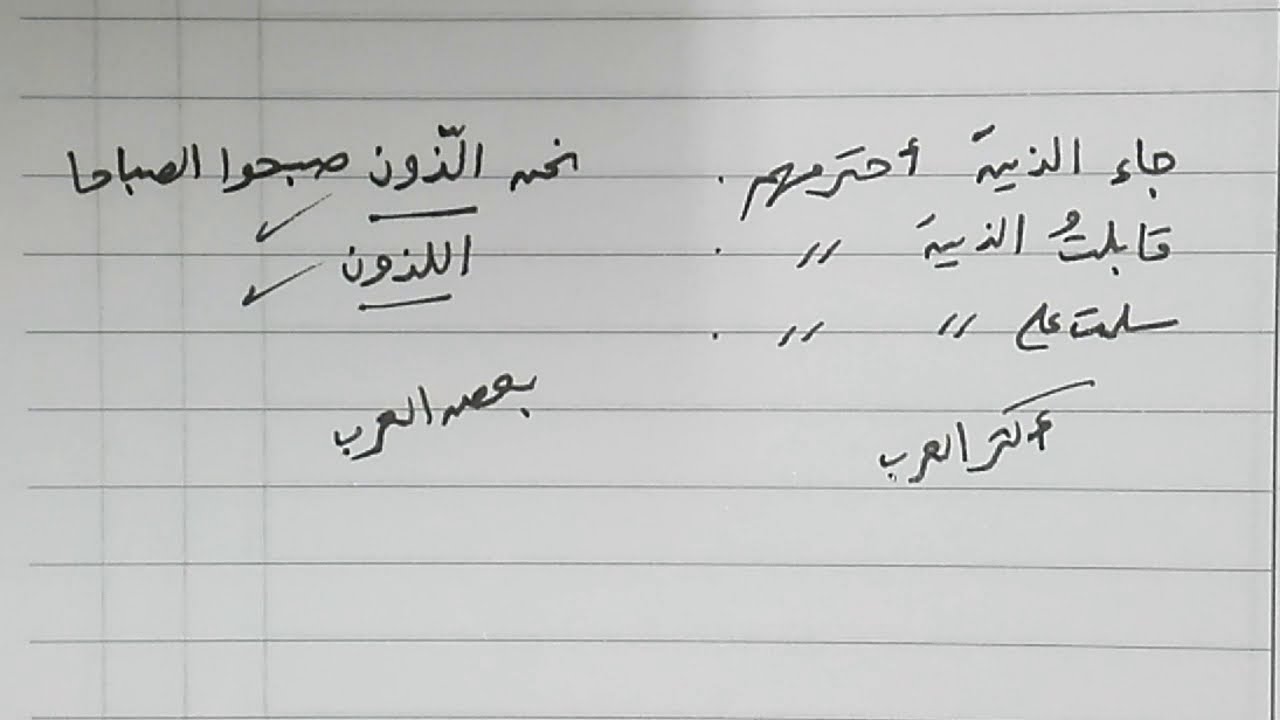 جاء الذينَ أحترمهم .
قابلتُ الذينَ 〃 .
سلمت على 〃 〃 .
أكثر العرب
نحن الّذون صبحوا الصباحا
اللذون
بعض العرب